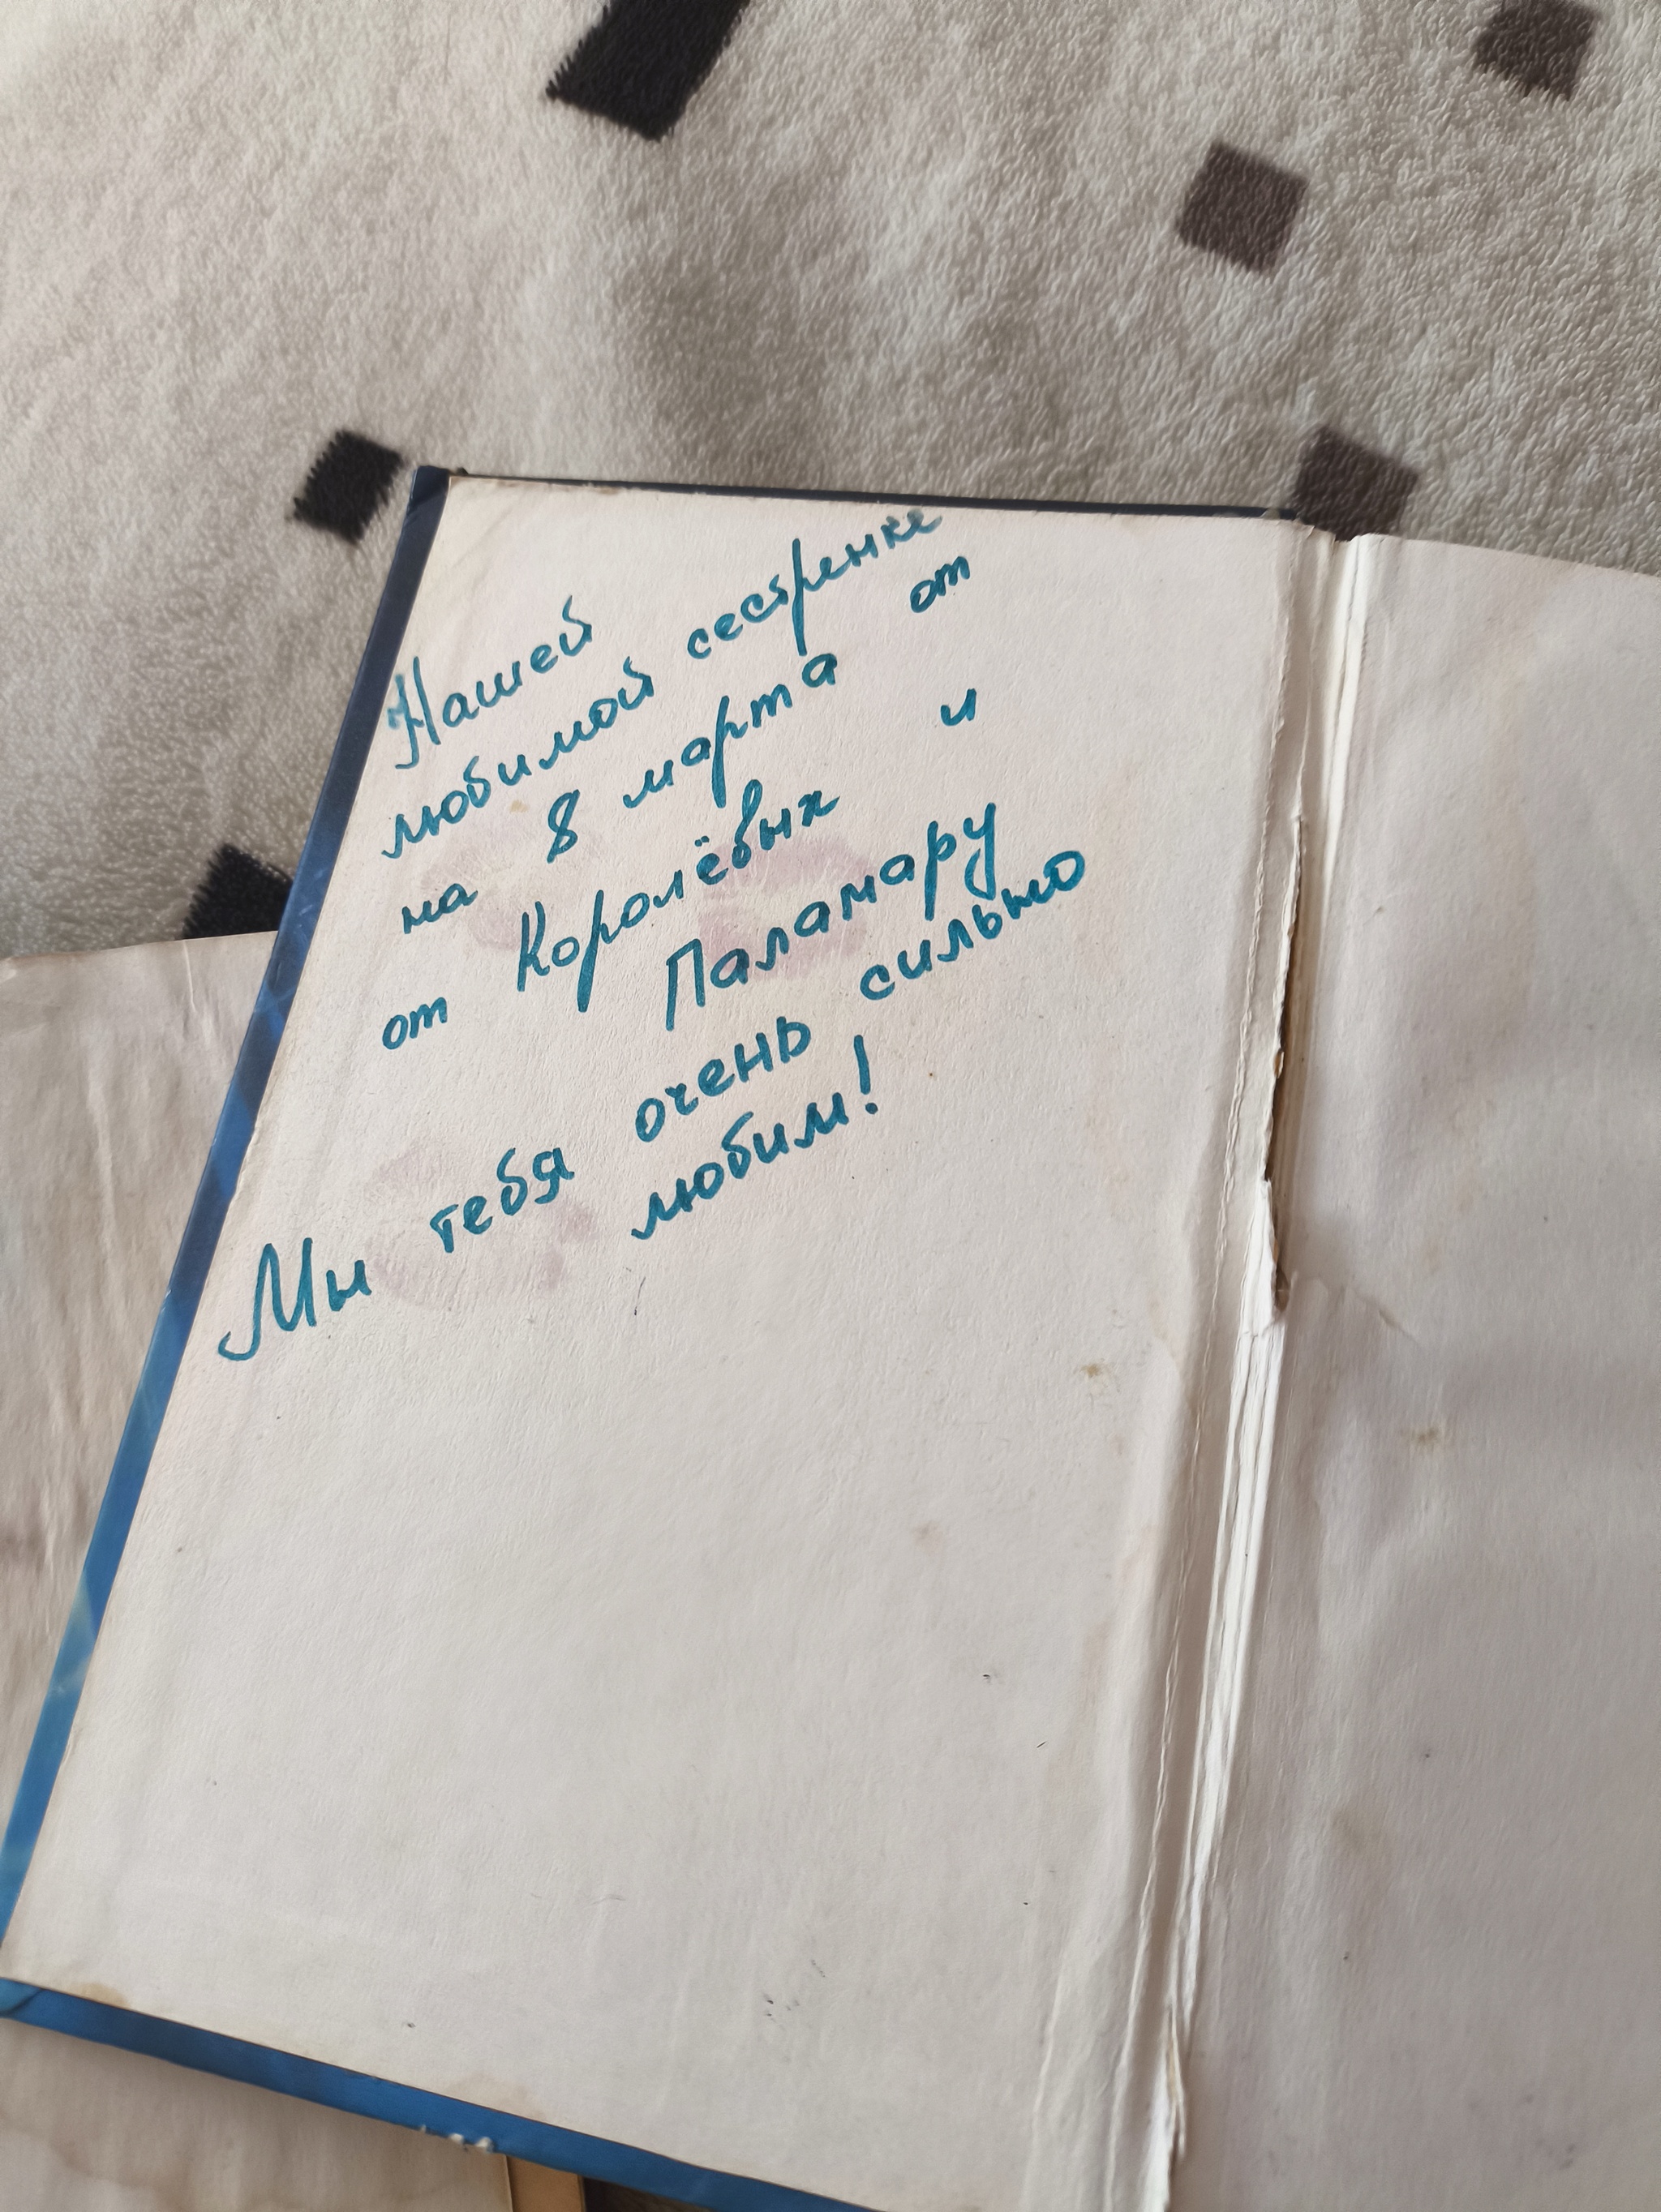 Нашей
любимой сестренке
на 8 марта от
от Королёвых и
Паламару
Мы тебя очень сильно
любим!